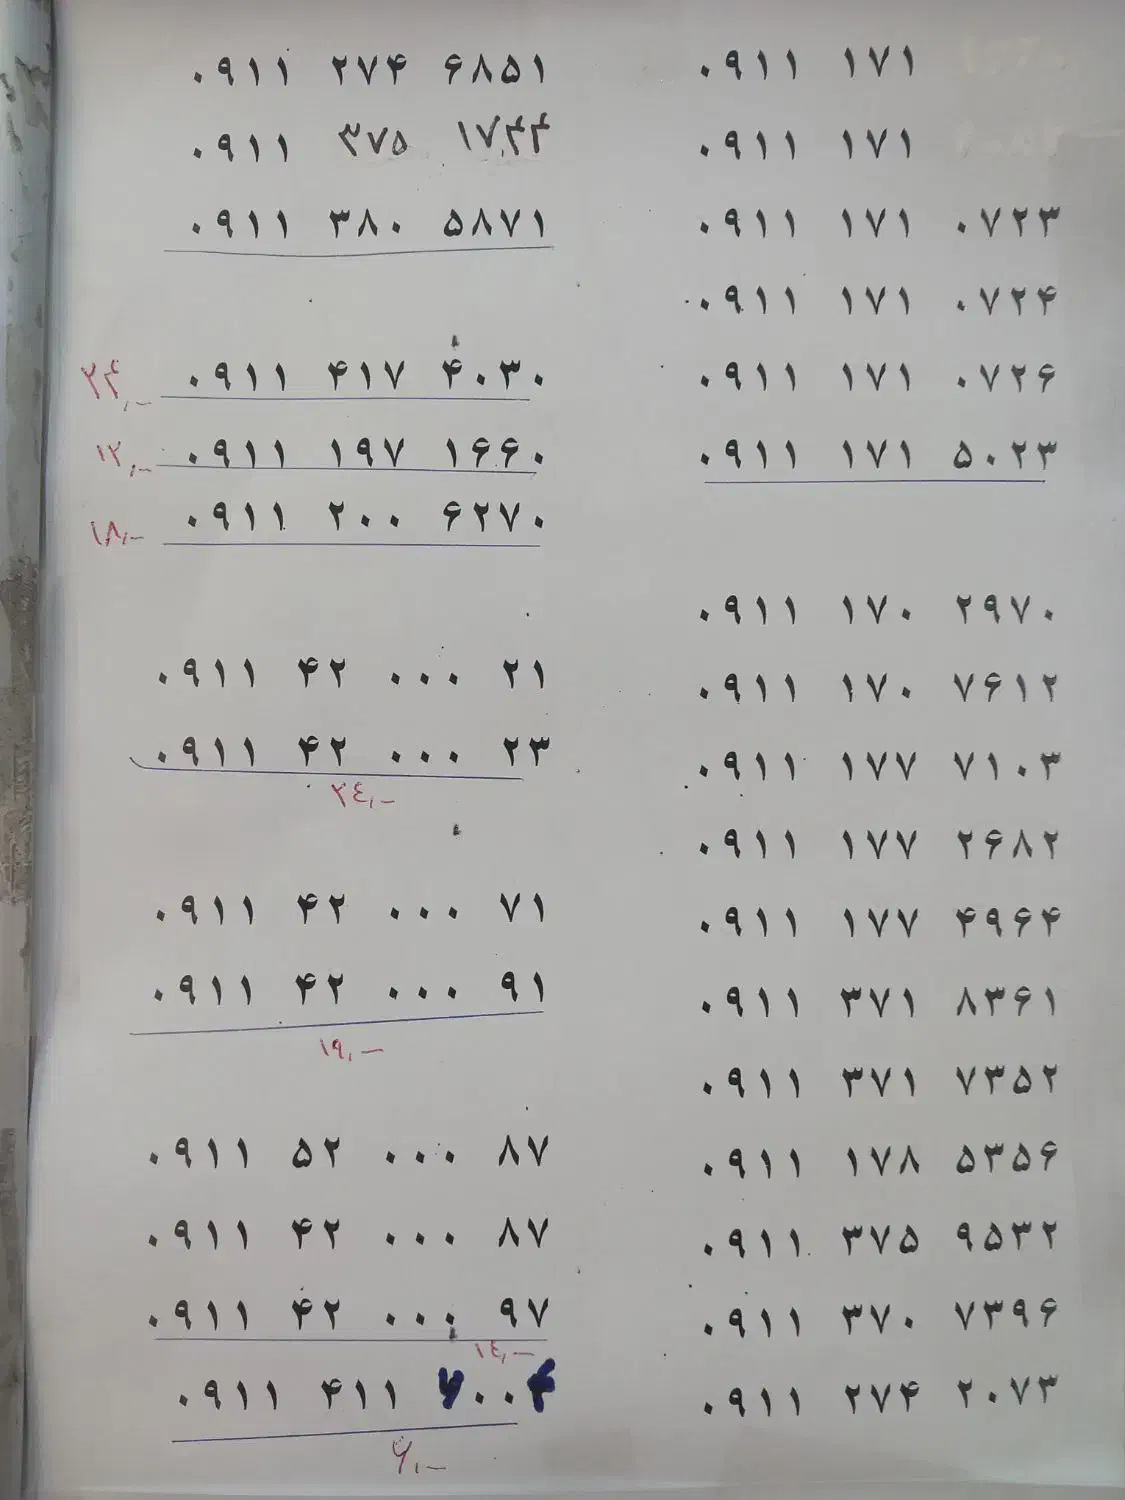 ۰۹۱۱ ۲۷۴ ۶۸۵۱
۰۹۱۱ ۳۷۵ ۱۷۴۴
۰۹۱۱ ۳۸۰ ۵۸۷۱
۲۴,– ۰۹۱۱ ۴۱۷ ۴۰۳۰
۱۲,– ۰۹۱۱ ۱۹۷ ۱۶۶۰
۱۸,– ۰۹۱۱ ۲۰۰ ۶۲۷۰
۰۹۱۱ ۴۲ ۰۰۰ ۲۱
۰۹۱۱ ۴۲ ۰۰۰ ۲۳
۲٤,–
۰۹۱۱ ۴۲ ۰۰۰ ۷۱
۰۹۱۱ ۴۲ ۰۰۰ ۹۱
۱۹,–
۰۹۱۱ ۵۲ ۰۰۰ ۸۷
۰۹۱۱ ۴۲ ۰۰۰ ۸۷
۰۹۱۱ ۴۲ ۰۰۰ ۹۷
۱٤,–
۰۹۱۱ ۴۱۱
۰۹۱۱ ۱۷۱
۰۹۱۱ ۱۷۱
۰۹۱۱ ۱۷۱ ۰۷۲۳
۰۹۱۱ ۱۷۱ ۰۷۲۴
۰۹۱۱ ۱۷۱ ۰۷۲۶
۰۹۱۱ ۱۷۱ ۵۰۲۳
۰۹۱۱ ۱۷۰ ۲۹۷۰
۰۹۱۱ ۱۷۰ ۷۶۱۲
۰۹۱۱ ۱۷۷ ۷۱۰۳
۰۹۱۱ ۱۷۷ ۲۶۸۲
۰۹۱۱ ۱۷۷ ۴۹۶۴
۰۹۱۱ ۳۷۱ ۸۳۶۱
۰۹۱۱ ۳۷۱ ۷۳۵۲
۰۹۱۱ ۱۷۸ ۵۳۵۶
۰۹۱۱ ۳۷۵ ۹۵۳۲
۰۹۱۱ ۳۷۰ ۷۳۹۶
۰۹۱۱ ۲۷۴ ۲۰۷۳